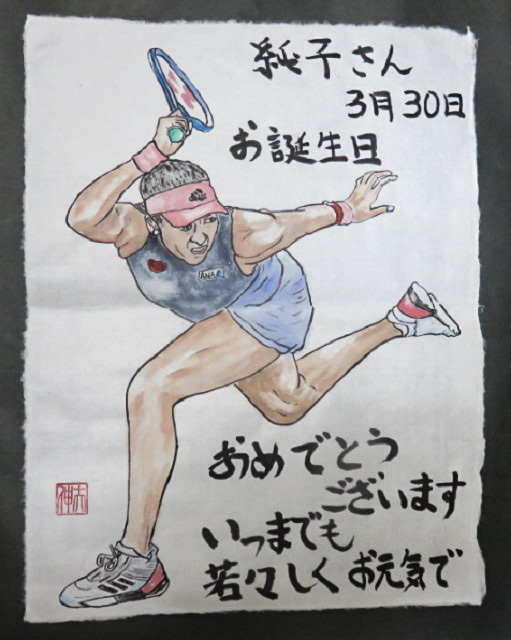 純子さん
3月30日
お誕生日
ANA
おめでとう
ございます
いつまでも
若々しくお元気で